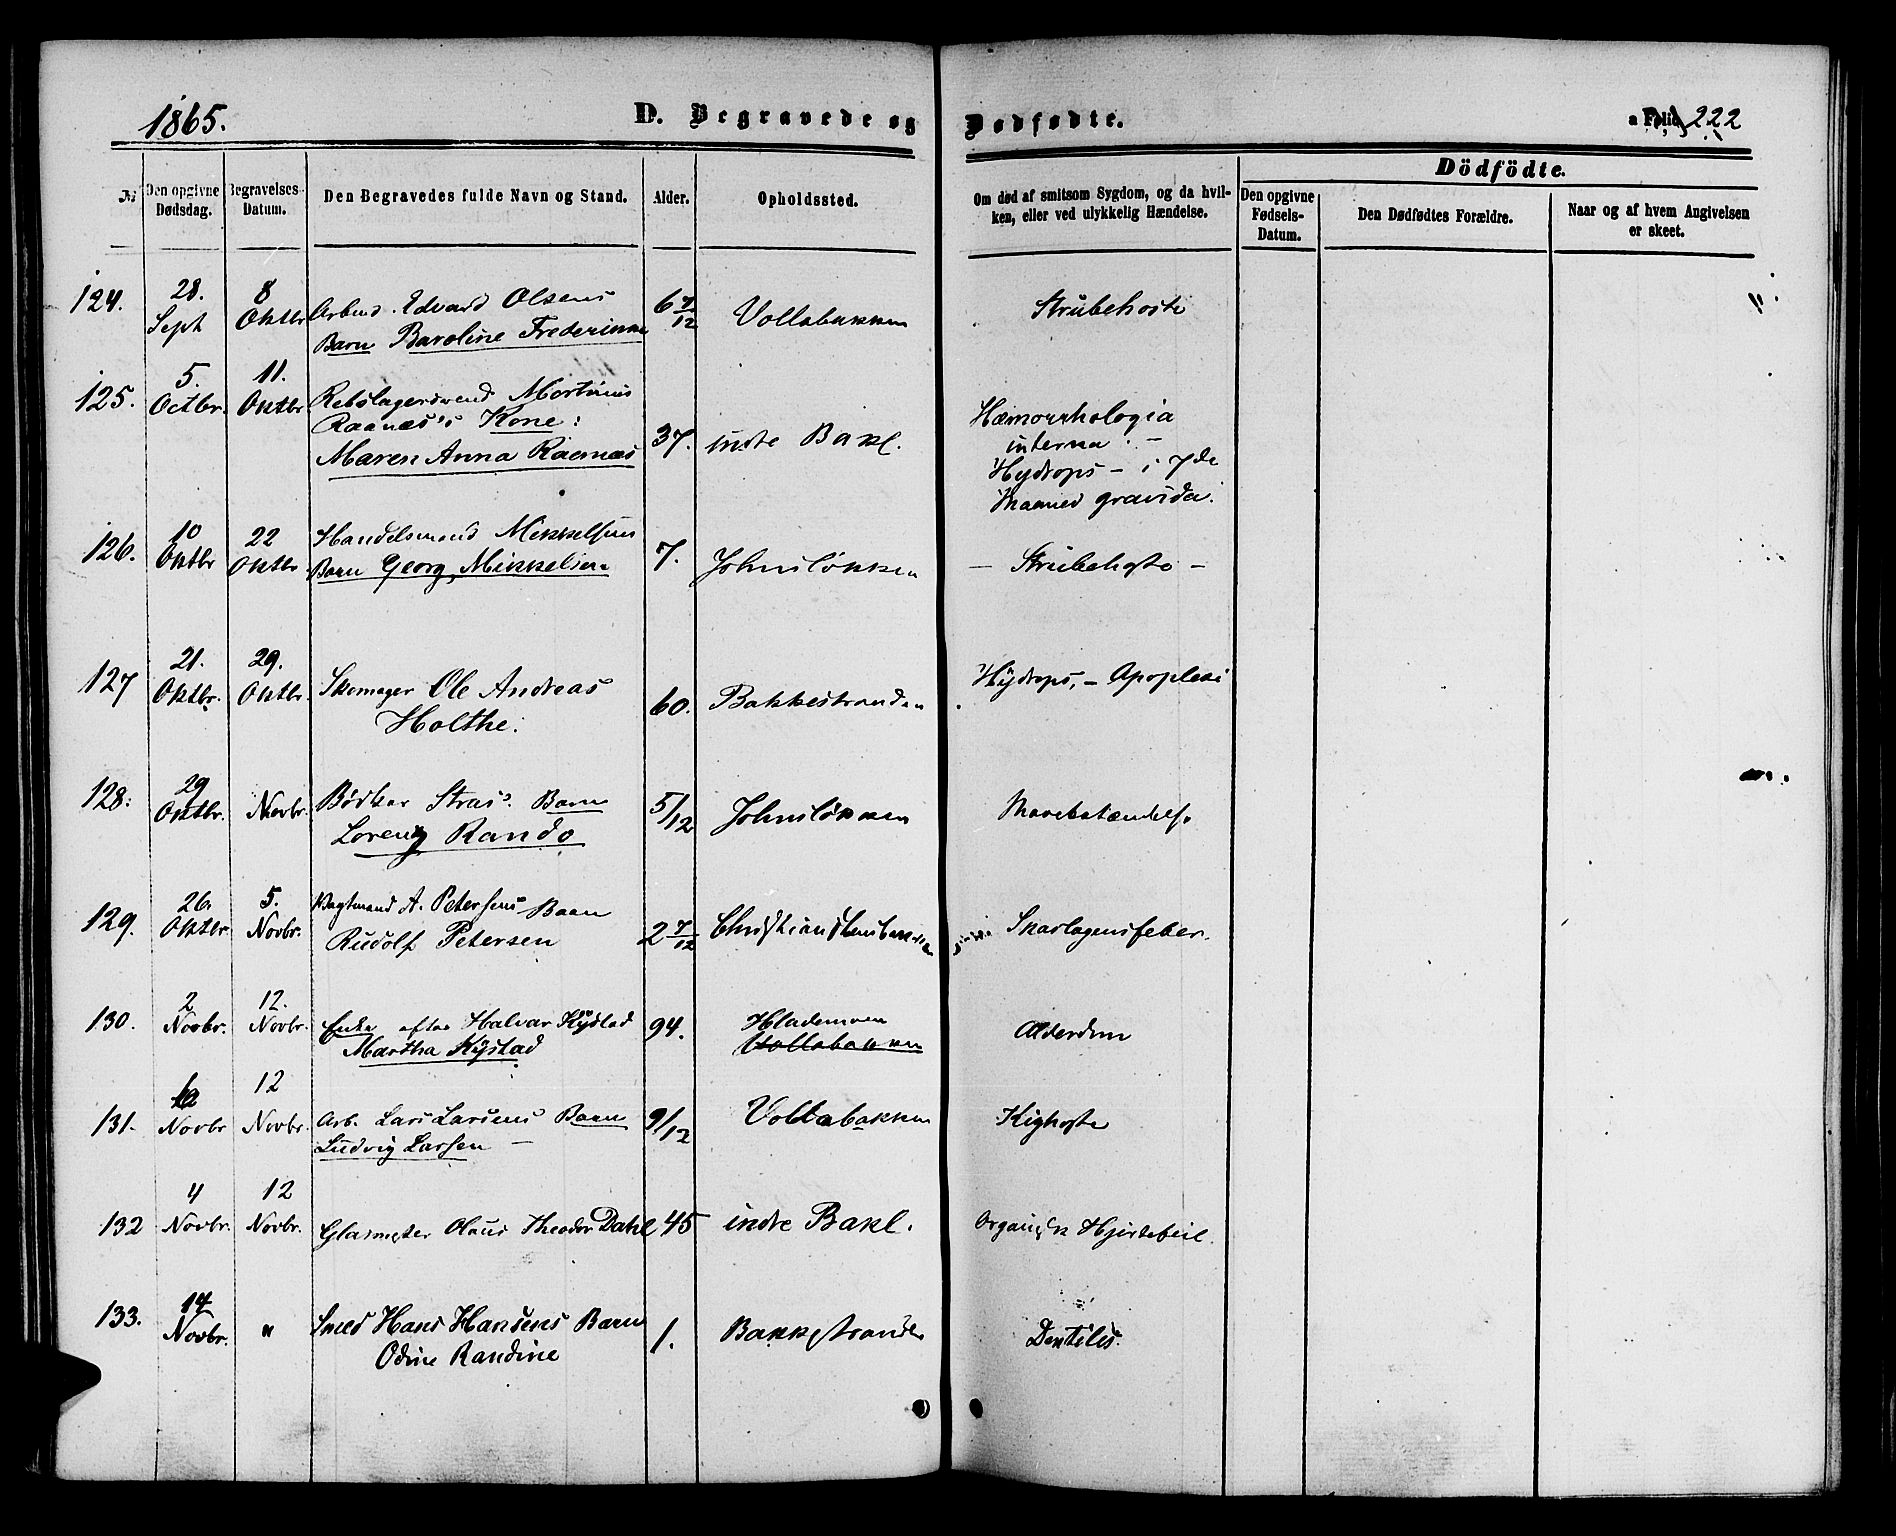 1865.
D. Begravede og Dødfødte.
a Folio 222
№
Den opgivne Dødsdag.
Begravelses-Datum.
Den Begravedes fulde Navn og Stand.
Alder.
Opholdssted.
Om død af smitsom Sygdom, og da hvil-
ken, eller ved ulykkelig Hændelse.
Dödfödte.
Den opgivne Fødsels-Datum.
Den Dødfødtes Forældre.
Naar og af hvem Angivelsen
er skeet.
124. 28. Sept 8 Oktbr Arbmd. Edvard Olsens
Barn Baroline Frederikke 6 7/12 Vollabakken Strubehoste
125. 5. Octbr. 11. Oktbr Rebslagersvend Mortinus
Raanæs's Kone:
Maren Anna Raanæs 37. indre Bakl.
Hæmorrhologia
interna. –
Hydrops – i 7de
Maaned gravida.
126. 10 Oktbr 22 Oktbr Handelsmand Mikkelsens
Barn Georg Mikkelsen 7. Johnsløkken – Strubehoste –
127 21. Oktbr. 29. Oktbr. Skomager Ole Andreas
Holthe. 60. Bakkestranden Hydrops, – Apoplexi
128. 29 Oktbr. Novbr. Bødker Barn
Lorentz Rando 5/12 Johnsløkken Mavebetændelse
129. 26. Oktbr. 5. Novbr. Vagtmand A. Petersens Barn
Rudolf Petersen 2 7/12 Christianstensbakken Skarlagensfeber.
130. 2 Novbr. 12. Novbr. Enke efter Halvar Kystad
Martha Kystad 94. Hlademoen
Vollabakken Alderdom
131. Novbr 12 Novbr. Arb. Lars Larsens Barn
Ludvig Larsen – 9/12 Vollabakken Kighoste
132 4 Novbr. 12 Novbr. Glasmester Olaus Theodor Dahl 45 indre Bakl. Organisk Hjertefeil.
133. 14 Novbr. " Smed Hans Hansens Barn
Odine Randine 1. Bakkestranden